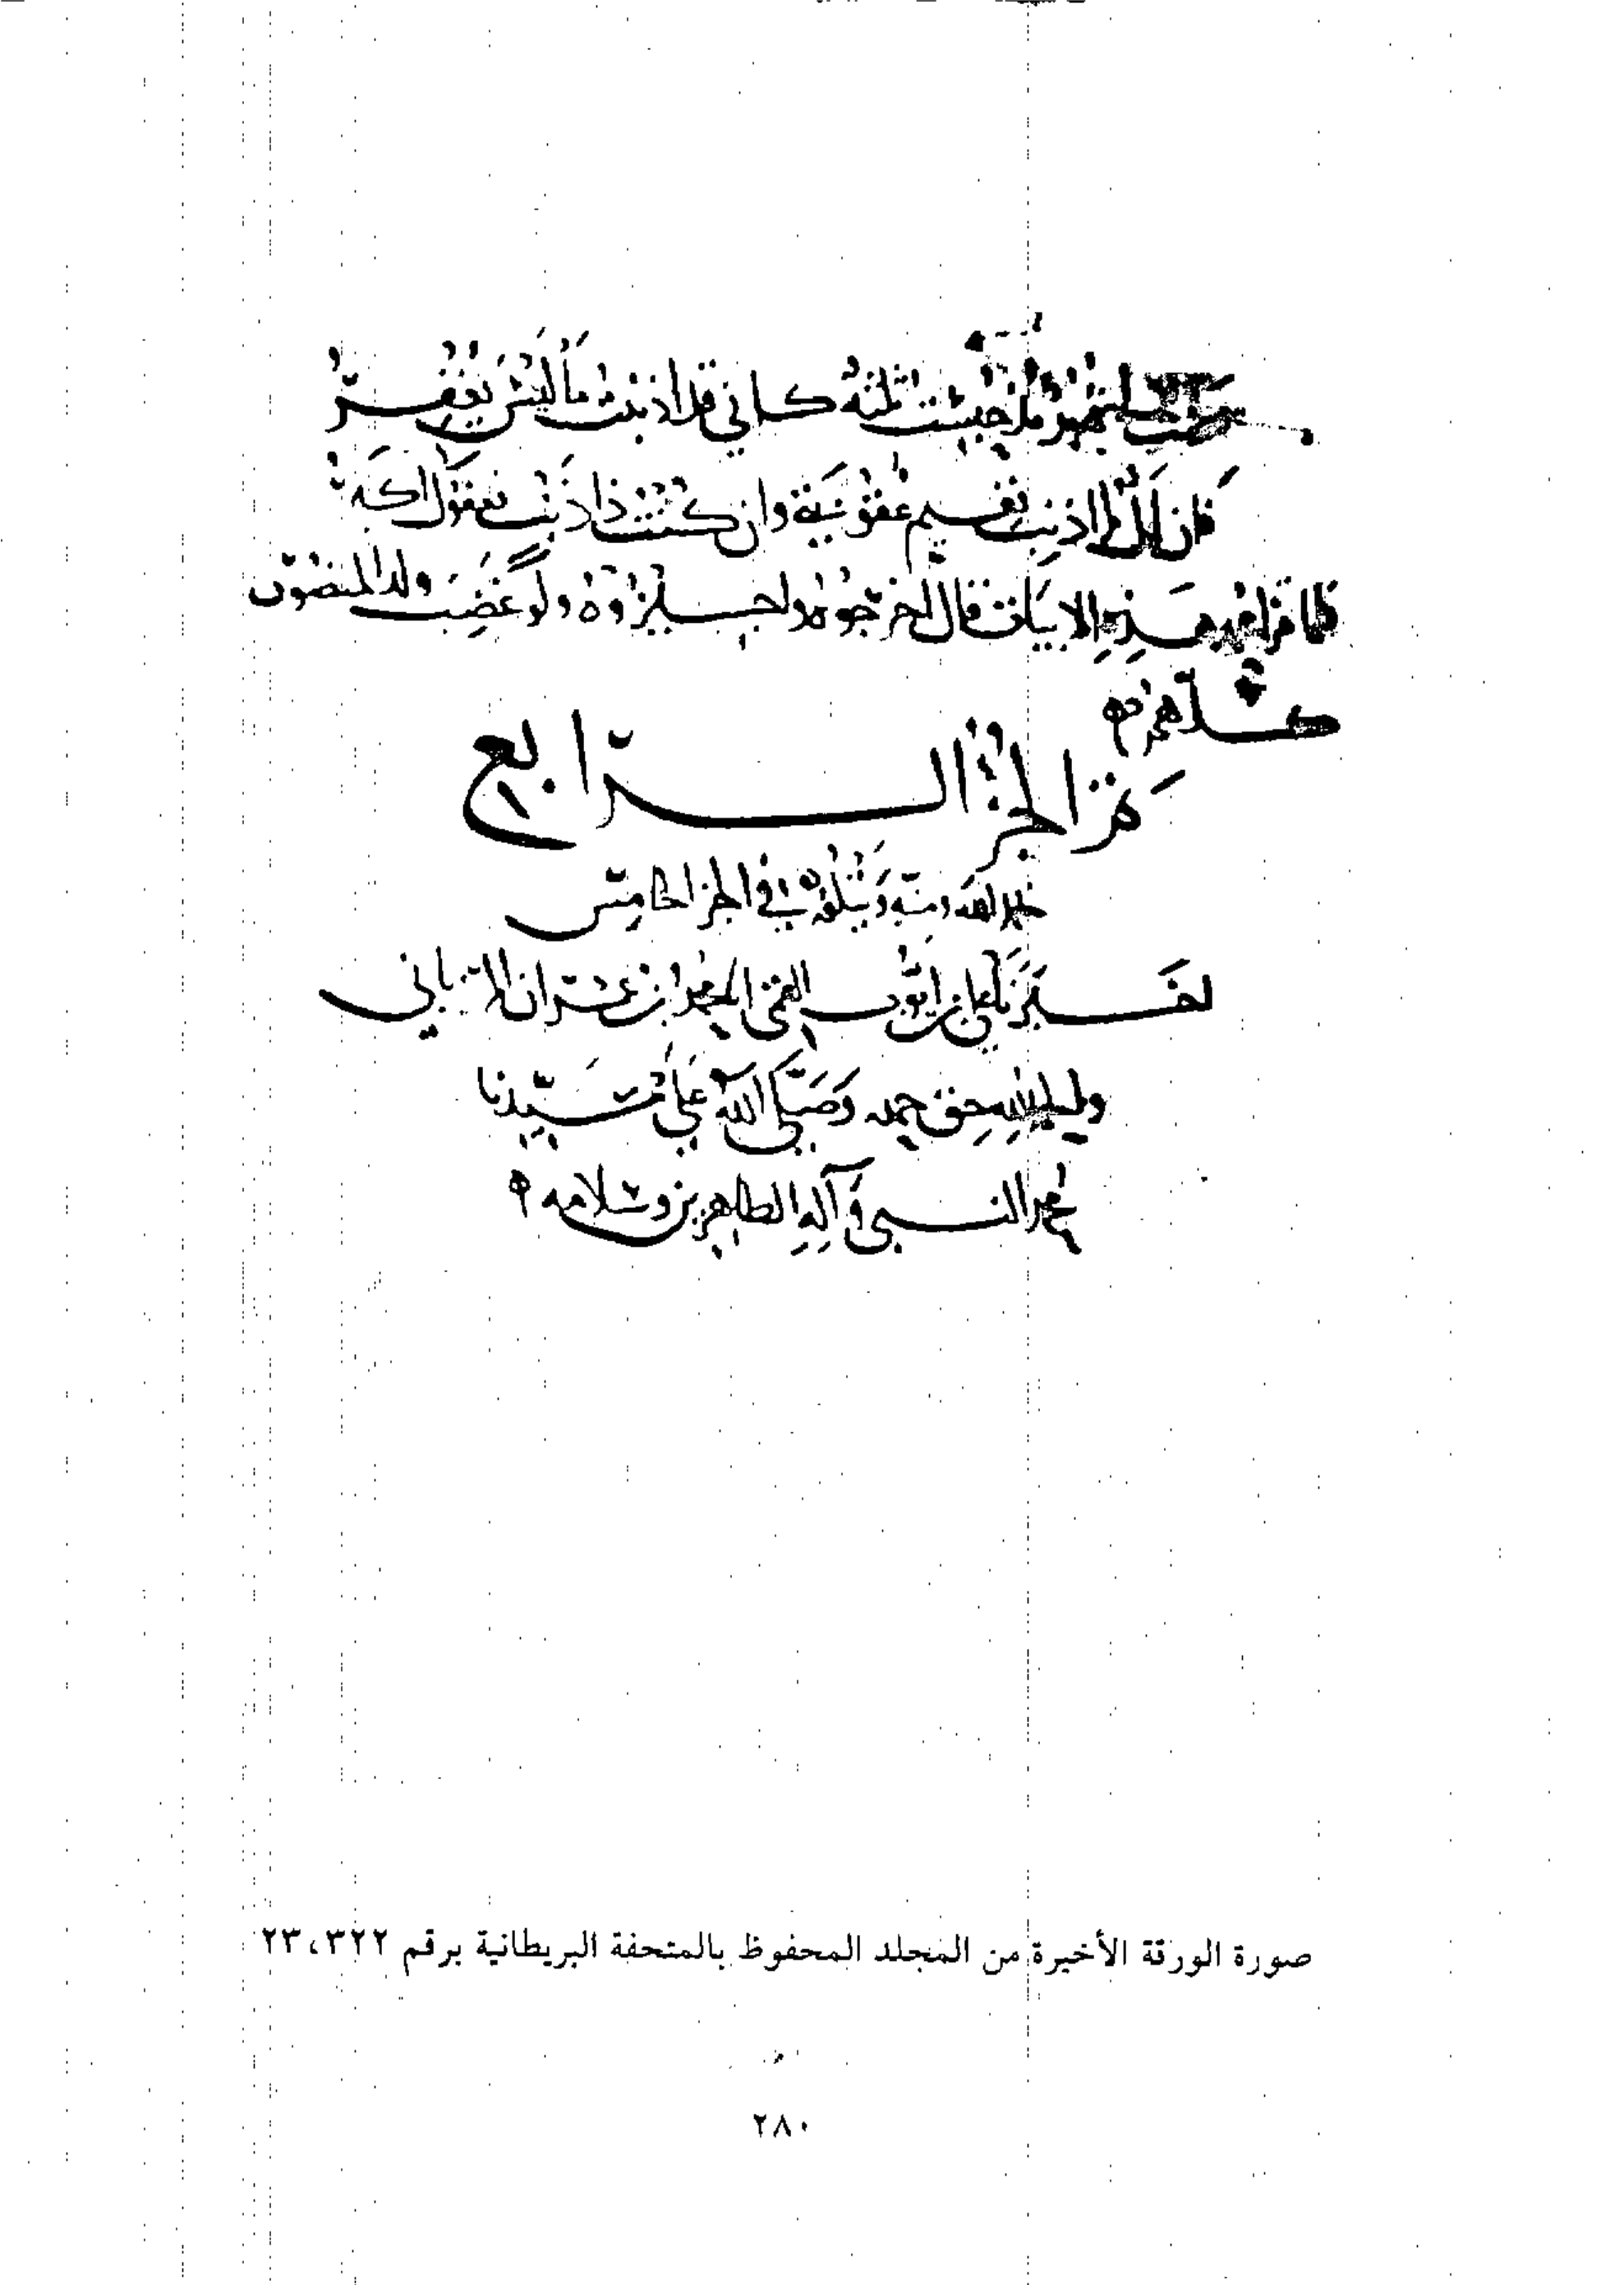 كاني قد اذنبت ما ليس يغفر
فان لم اذنب ففيم عقوبتي وان كنت ذا ذنب فعفوك اكبر
فلما قرا هذه الابيات قال اخرجوه واجيزوه ولو غضب ولد المنصور
كلهم
تم الجزء الرابع
بحمد الله ومنه ويتلوه في الجزء الخامس
خبر ايوب القمي بن عمران
والحمد لله حق حمده وصلى الله على سيدنا
محمد النبي وآله الطاهرين وسلامه
صورة الورقة الأخيرة من المجلد المحفوظ بالمتحفة البريطانية برقم ٢٣،٣٢٢
٢٨٠